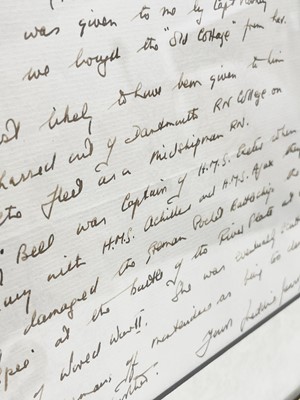 was given to me by Capt
we bought the "Old Cottage" from her.
likely to have been given to him
passed out of Dartmouth RN College on
to fleet as a Midshipman RN.
Bell was Captain of H.M.S. Exeter when
with H.M.S. Achilles and H.M.S. Ajax they
damaged the German Pocket Battleship
Spee" at the battle of the River Plate at
of World War II. She was eventually
of
Yours